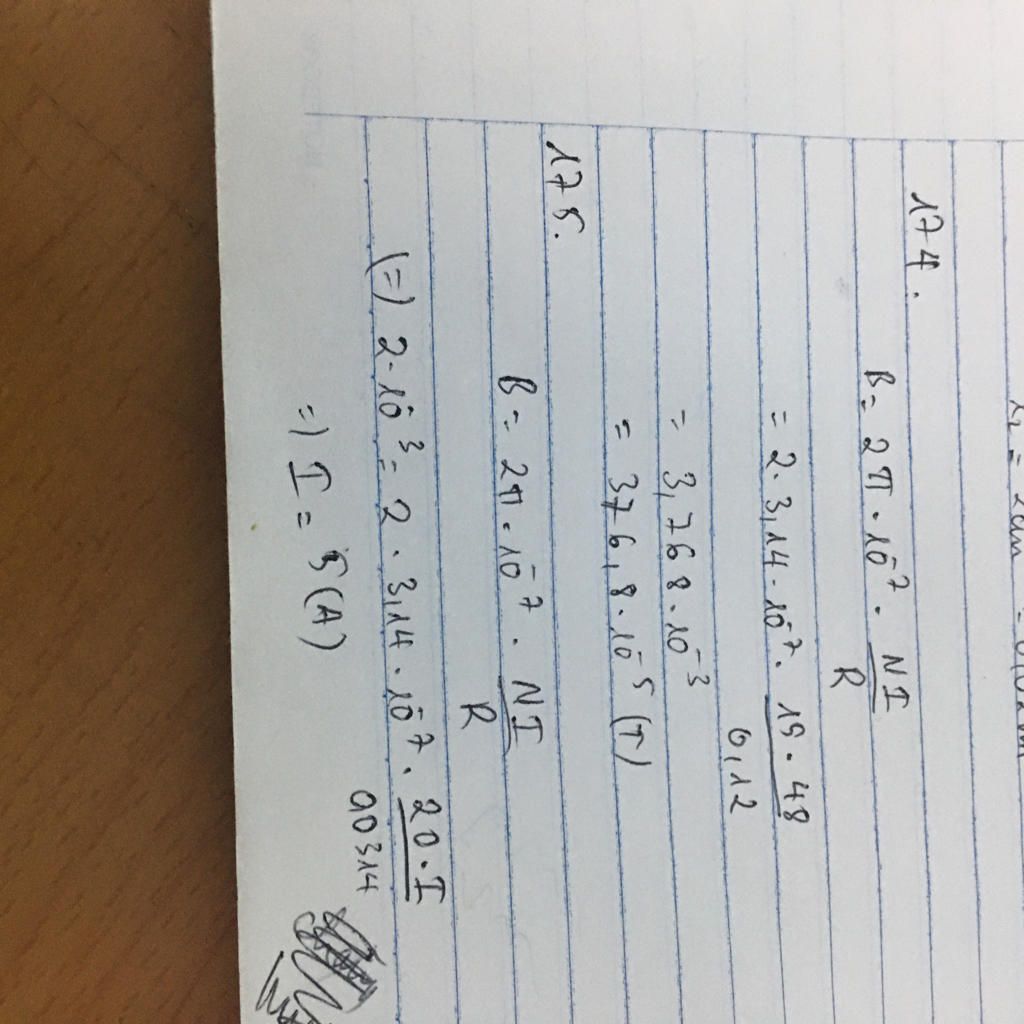 174.
B = 2π · 10⁻⁷ · NI/R
= 2 · 3,14 · 10⁻⁷ · 15 · 48/0,12
= 3,768 · 10⁻³
= 376,8 · 10⁻⁵ (T)
175.
B = 2π · 10⁻⁷ · NI/R
(=) 2 · 10⁻³ = 2 · 3,14 · 10⁻⁷ · 20 · I/0,0314
=) I = 5 (A)